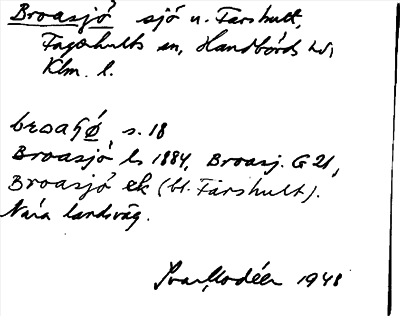 Broasjö sjö u. Färshult,
Fagerhults sn, Handbörds hd,
Klm. l.
broasø̄ s. 18
Broasjö ls 1884, Broasj. G 21,
Broasjö ek (bl. Färshult).
Nära landsväg.
Ivar Modéer 1948